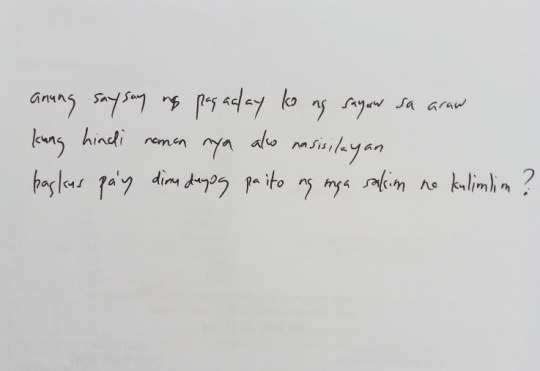 anung saysay ng pag aalay ko ng sayaw sa araw
kung hindi naman nya ako nasisilayan
bagkus pa'y dinuduyog pa ito ng mga sakim na kulimlim?